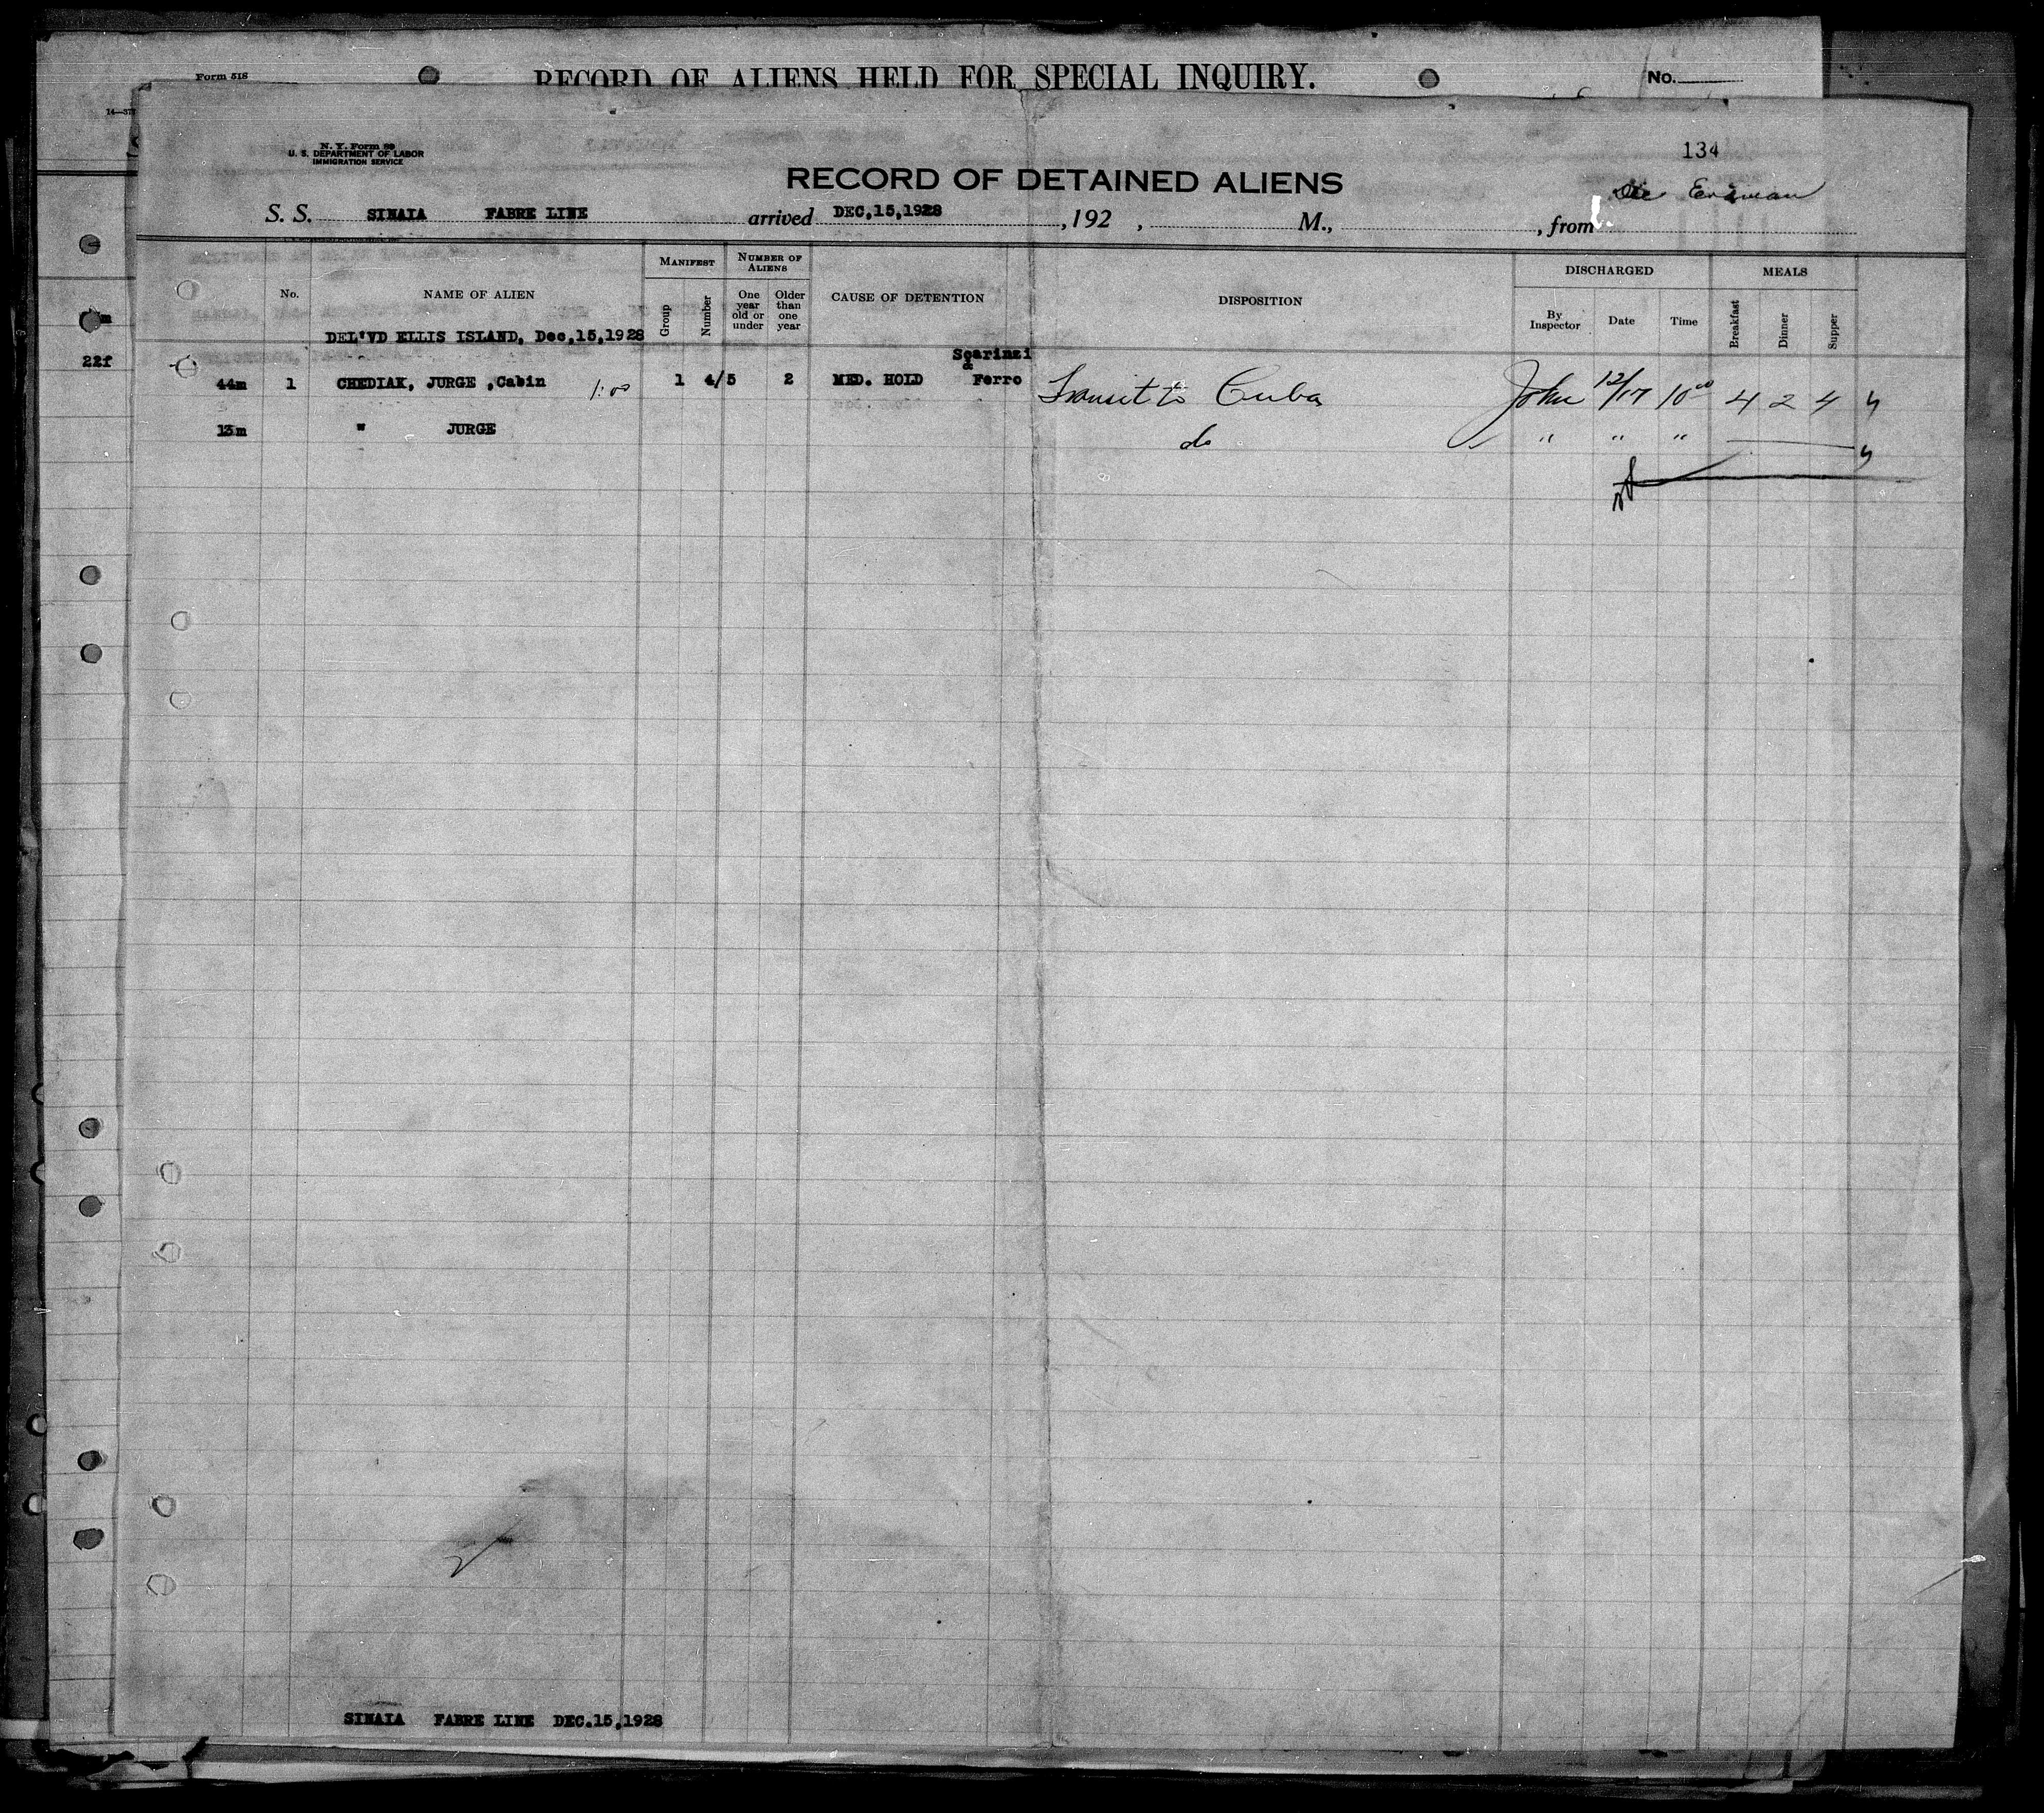 Form 518
RECORD OF ALIENS HELD FOR SPECIAL INQUIRY.
No.
N. Y. Form 89
U. S. DEPARTMENT OF LABOR
IMMIGRATION SERVICE
134
RECORD OF DETAINED ALIENS
S. S. SINAIA FABRE LINE arrived DEC,15,1928 , 192 , M., , from
MANIFEST NUMBER OF ALIENS DISCHARGED MEALS
No. NAME OF ALIEN Group Number One year old or under Older than one year CAUSE OF DETENTION DISPOSITION By Inspector Date Time Breakfast Dinner Supper
DEL'VD ELLIS ISLAND, Dec,15,1928
22f
Scarinzi
&
44m 1 CHEDIAK, JURGE ,Cabin 1:00 1 4/5 2 MED. HOLD Ferro Transit to Cuba John 12/17 10 00 4 2 4
13m " JURGE do " " "
SINAIA FABRE LINE DEC.15,1928